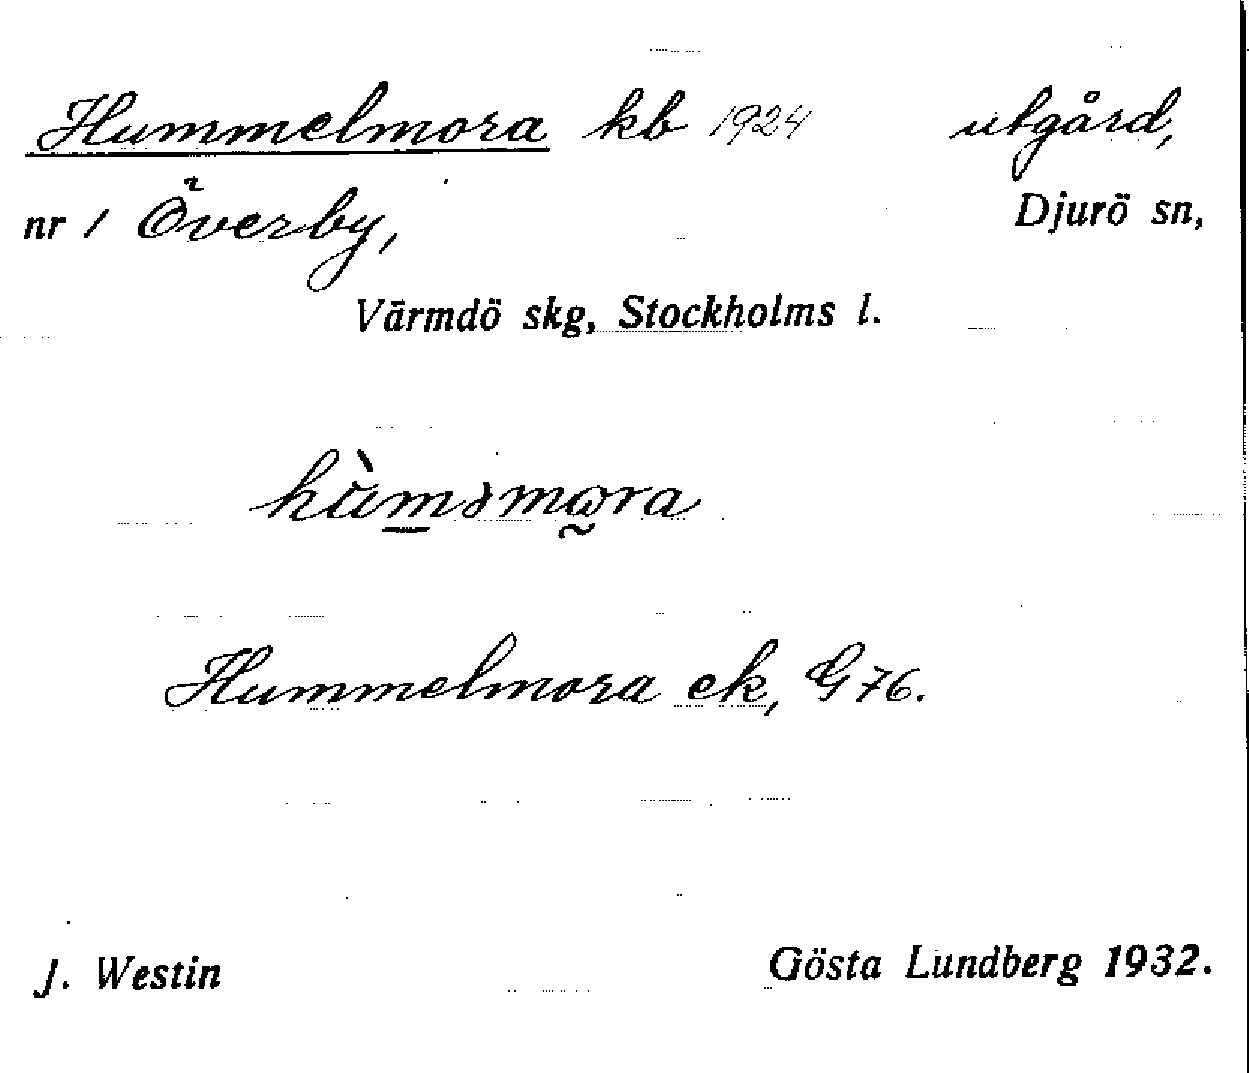 Hummelmora kb 1924 utgård,
nr 1 Överby, Djurö sn,
Värmdö skg, Stockholms l.
Hummelmora ek, G 76.
J. Westin Gösta Lundberg 1932.